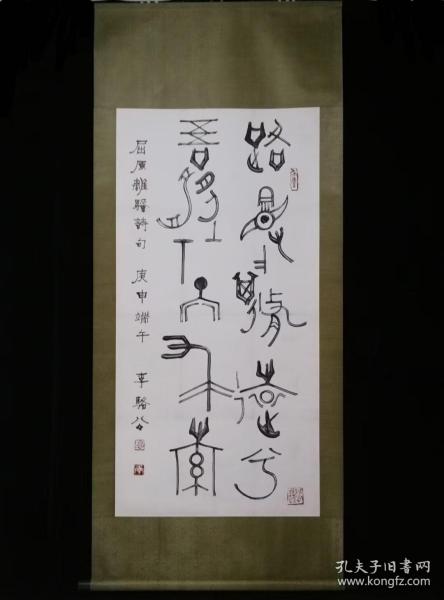 路曼=其脩遠兮
吾將上下而求索
屈原離騷詩句 庚申端午 李駱公
孔夫子旧书网
www.kongfz.com